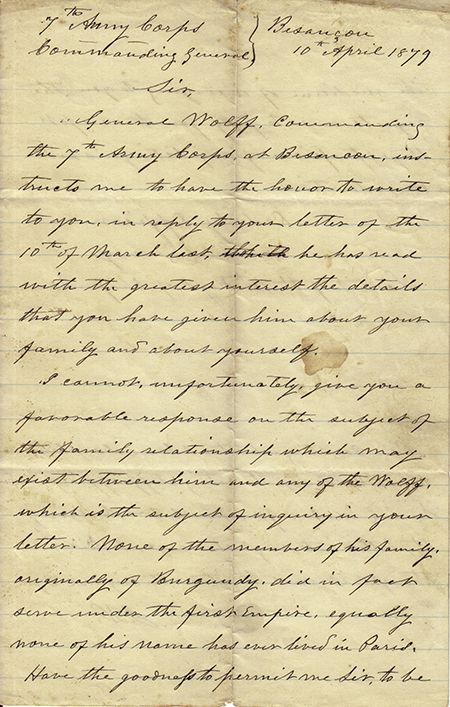 7th Army Corps } Besançon
Commanding General } 10th April 1879
Sir,
General Wolff, Commanding
the 7th Army Corps, at Besancon, ins-
tructs me to have the honor to write
to you, in reply to your letter of the
10th of March last, he has read
with the greatest interest the details
that you have given him about your
family and about yourself.
I cannot, unfortunately, give you a
favorable response on the subject of
the family relationship which may
exist between him and any of the Wolff,
which is the subject of inquiry in your
letter. None of the members of his family,
originally of Burgundy, did in fact
serve under the first Empire, equally
none of his name has ever lived in Paris.
Have the goodness to permit me Sir, to be